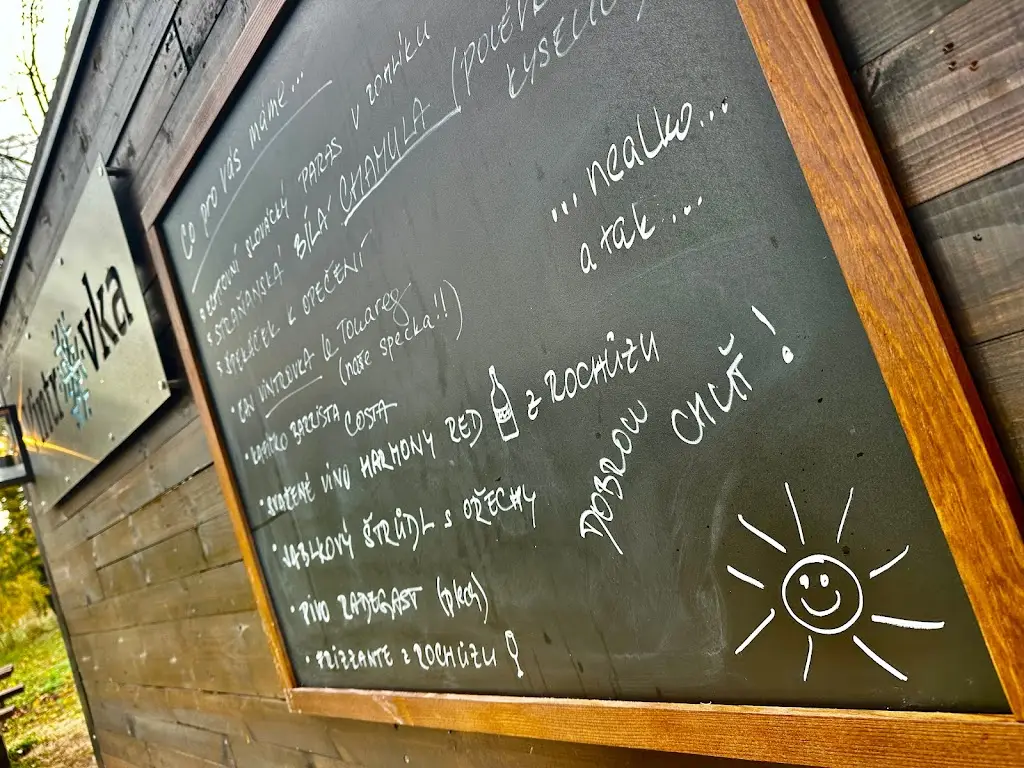 Co pro vás máme...
• POCTIVÝ SLOVÁCKÝ PÁREK V ROHLÍKU
• STRÁŇANSKÁ BÍLÁ CHAMULA (POLÉVKA
KYSELICA
• ŠPEKÁČEK K OPEČENÍ
• ČAJ VINTROVKA le Touareg
(naše specka!!)
• KAFÍČKO BARISTA COSTA
• SVAŘENÉ VÍNO HARMONY RED Z ROCHŮZU
• JABLKOVÝ ŠTRŮDL S OŘECHY
• PIVO RADEGAST (plech)
• FRIZZANTE Z ROCHŮZU
... nealko...
a tak...
DOBROU
CHUŤ!
vintrovka